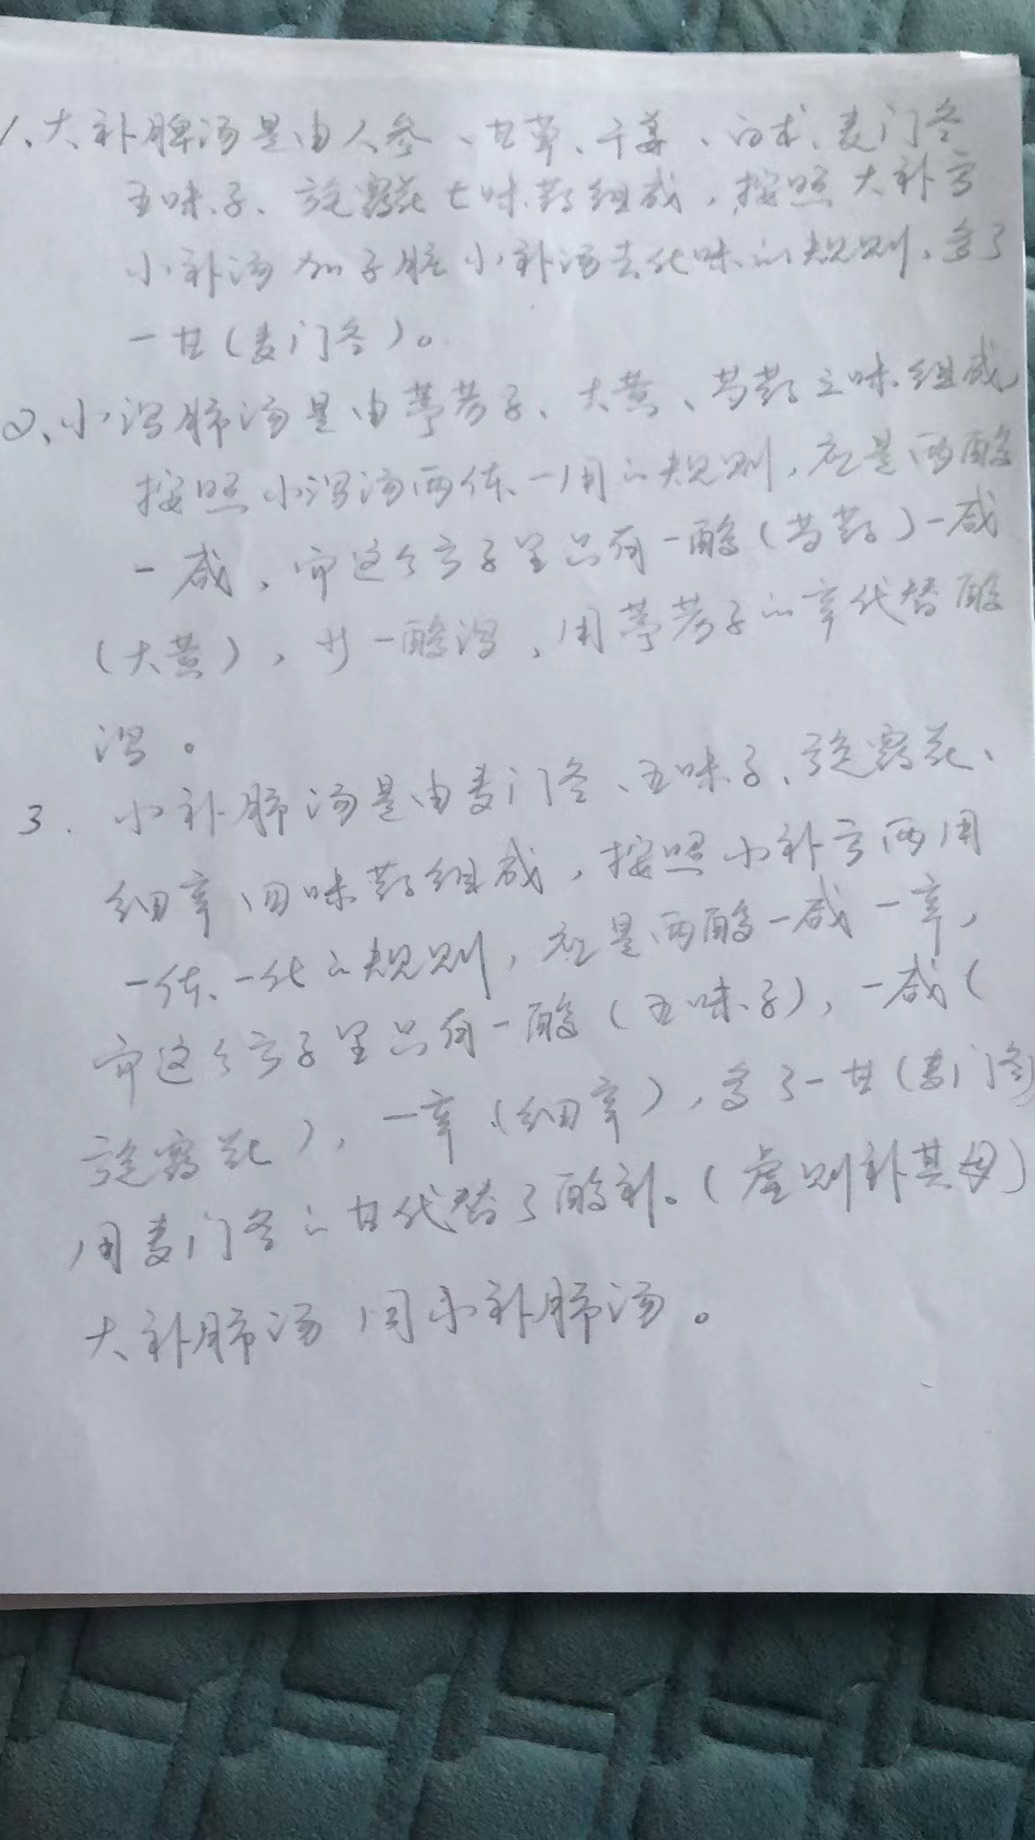 1、大补脾汤是由人参、甘草、干姜、白术、麦门冬
五味子、旋覆花七味药组成，按照大补方
小补汤加子脏小补汤去化味的规则，多了
一甘（麦门冬）。
2、小泻肺汤是由葶苈子、大黄、芍药三味组成
按照小泻汤两体、一用的规则，应是两酸
一咸，而这个方子里只有一酸（芍药）一咸
（大黄），少一酸泻，用葶苈子的辛代替酸
泻。
3．小补肺汤是由麦门冬、五味子、旋覆花、
细辛四味药组成，按照小补方两用
一体、一化的规则，应是两酸一咸一辛，
而这个方子里只有一酸（五味子），一咸（
旋覆花），一辛（细辛），多了一甘（麦门冬）
用麦门冬的甘代替了酸补。（虚则补其母）
大补肺汤同小补肺汤。